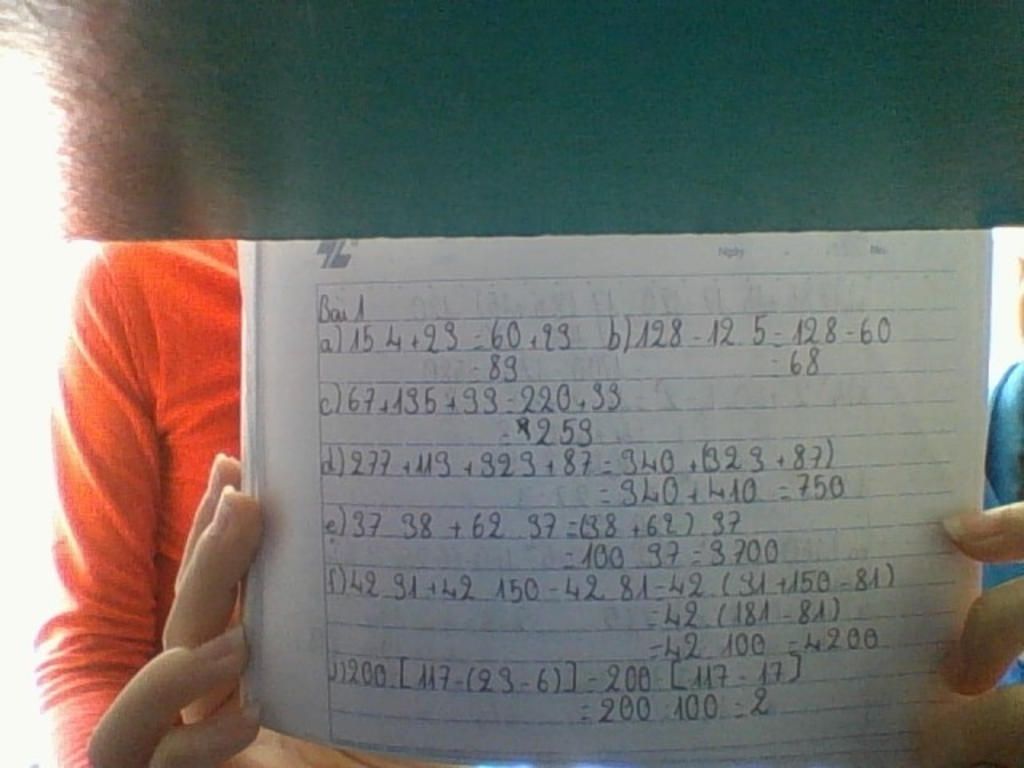 Ngày No.
Bài 1
a) 15 4 + 23 = 60 + 23 b) 128 - 12 5 = 128 - 60
= 83 = 68
c) 67 + 135 + 33 = 220 + 33
= 253
d) 277 + 113 + 323 + 87 = 340 + (323 + 87)
= 340 + 410 = 750
e) 37 38 + 62 37 = (38 + 62) 37
= 100 37 = 3700
f) 42 31 + 42 150 - 42 81 = 42 (31 + 150 - 81)
= 42 (181 - 81)
= 42 100 = 4200
200 : [117 - (23 - 6)] = 200 : [117 - 17]
= 200 : 100 = 2